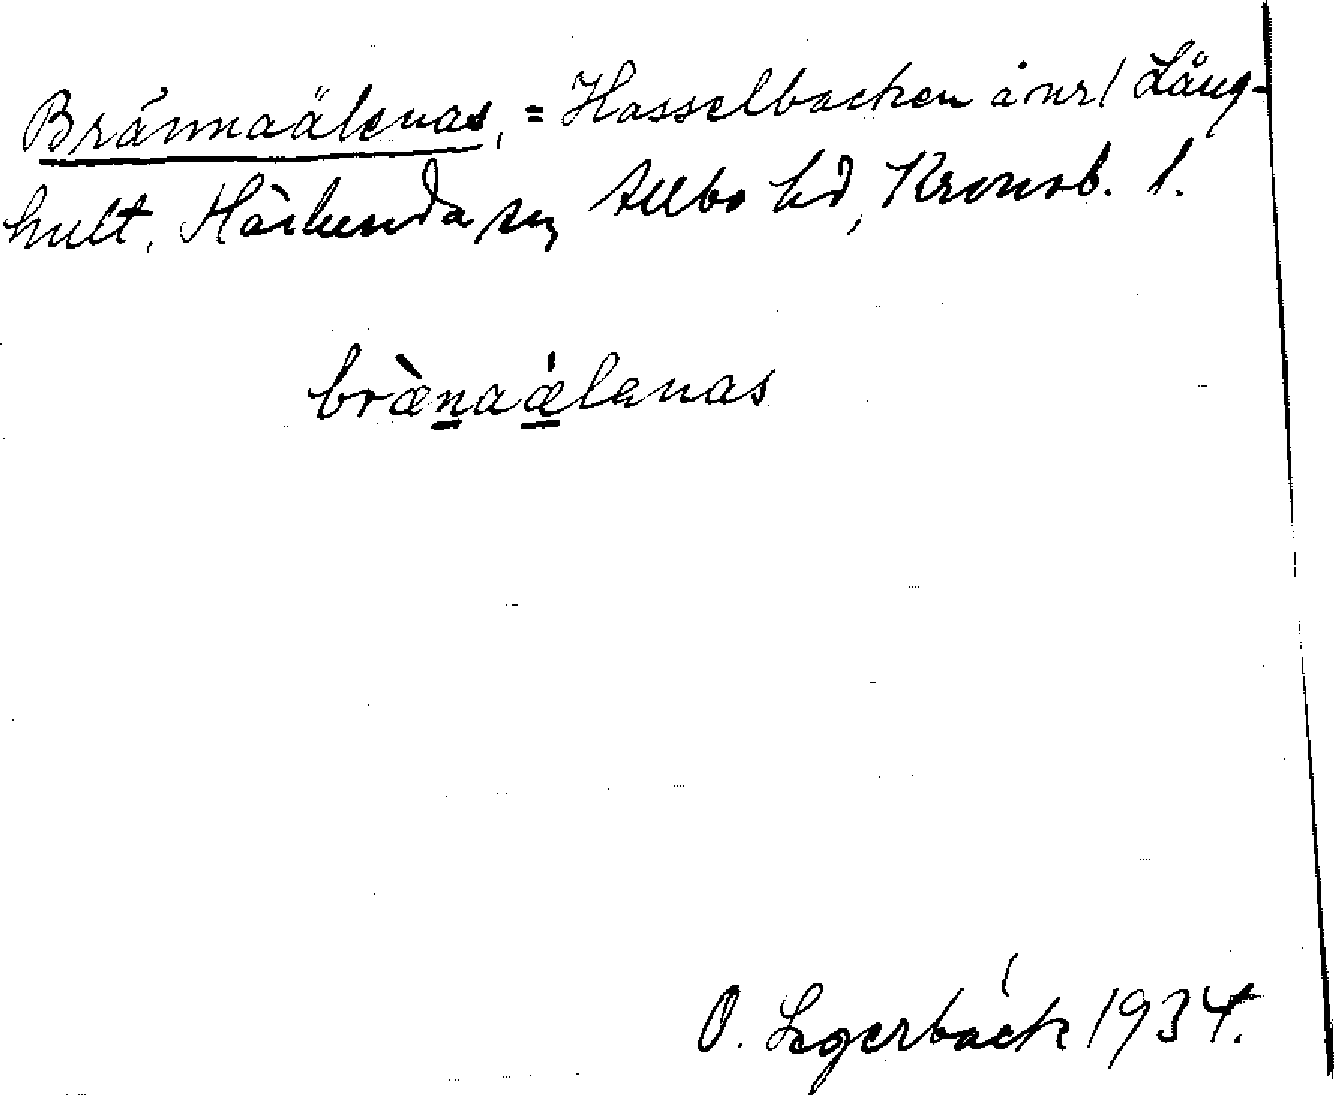 Brännaälenas, = Hasselbacken å nr 1 Lång-
hult, Härlunda sn, Allbo hd, Kronob. l.
bræ̀na ǽlenas
O. Legerbäck 1934.